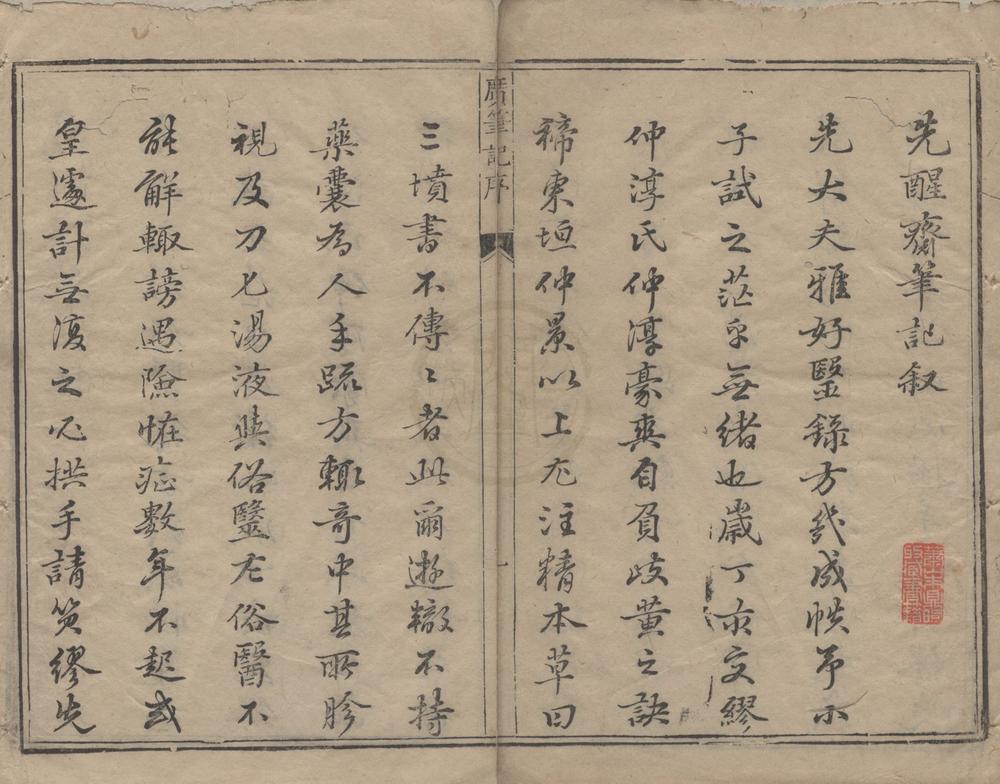 先醒齋筆記叙
先大夫雅好醫錄方幾成帙予小
子試之茫乎無緒也歲丁亦交繆
仲淳氏仲淳豪爽自負岐黃之訣
褅東垣仲景以上尤注精本草曰
廣筆記序
一
三墳書不傳〻者此爾遊轍不持
藥囊為人手疏方輒奇中其所胗
視及刀匕湯液與俗醫左俗醫不
能解輒謗遇險恠症數年不起或
皇遽計無復之必拱手請筴繆先